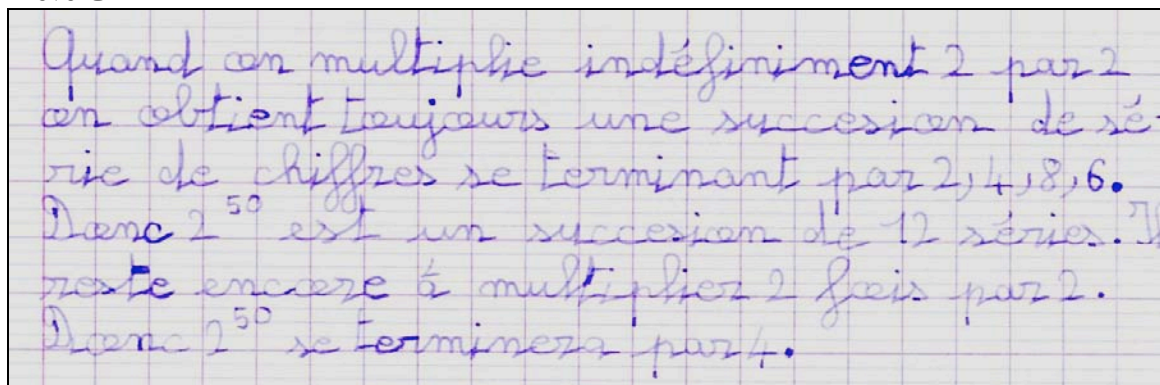 Quand on multiplie indéfiniment 2 par 2
on obtient toujours une succesion de sé-
rie de chiffres se terminant par 2, 4, 8, 6.
Donc 2⁵⁰ est un succesion de 12 séries. Il
reste encore à multiplier 2 fois par 2.
Donc 2⁵⁰ se terminera par 4.